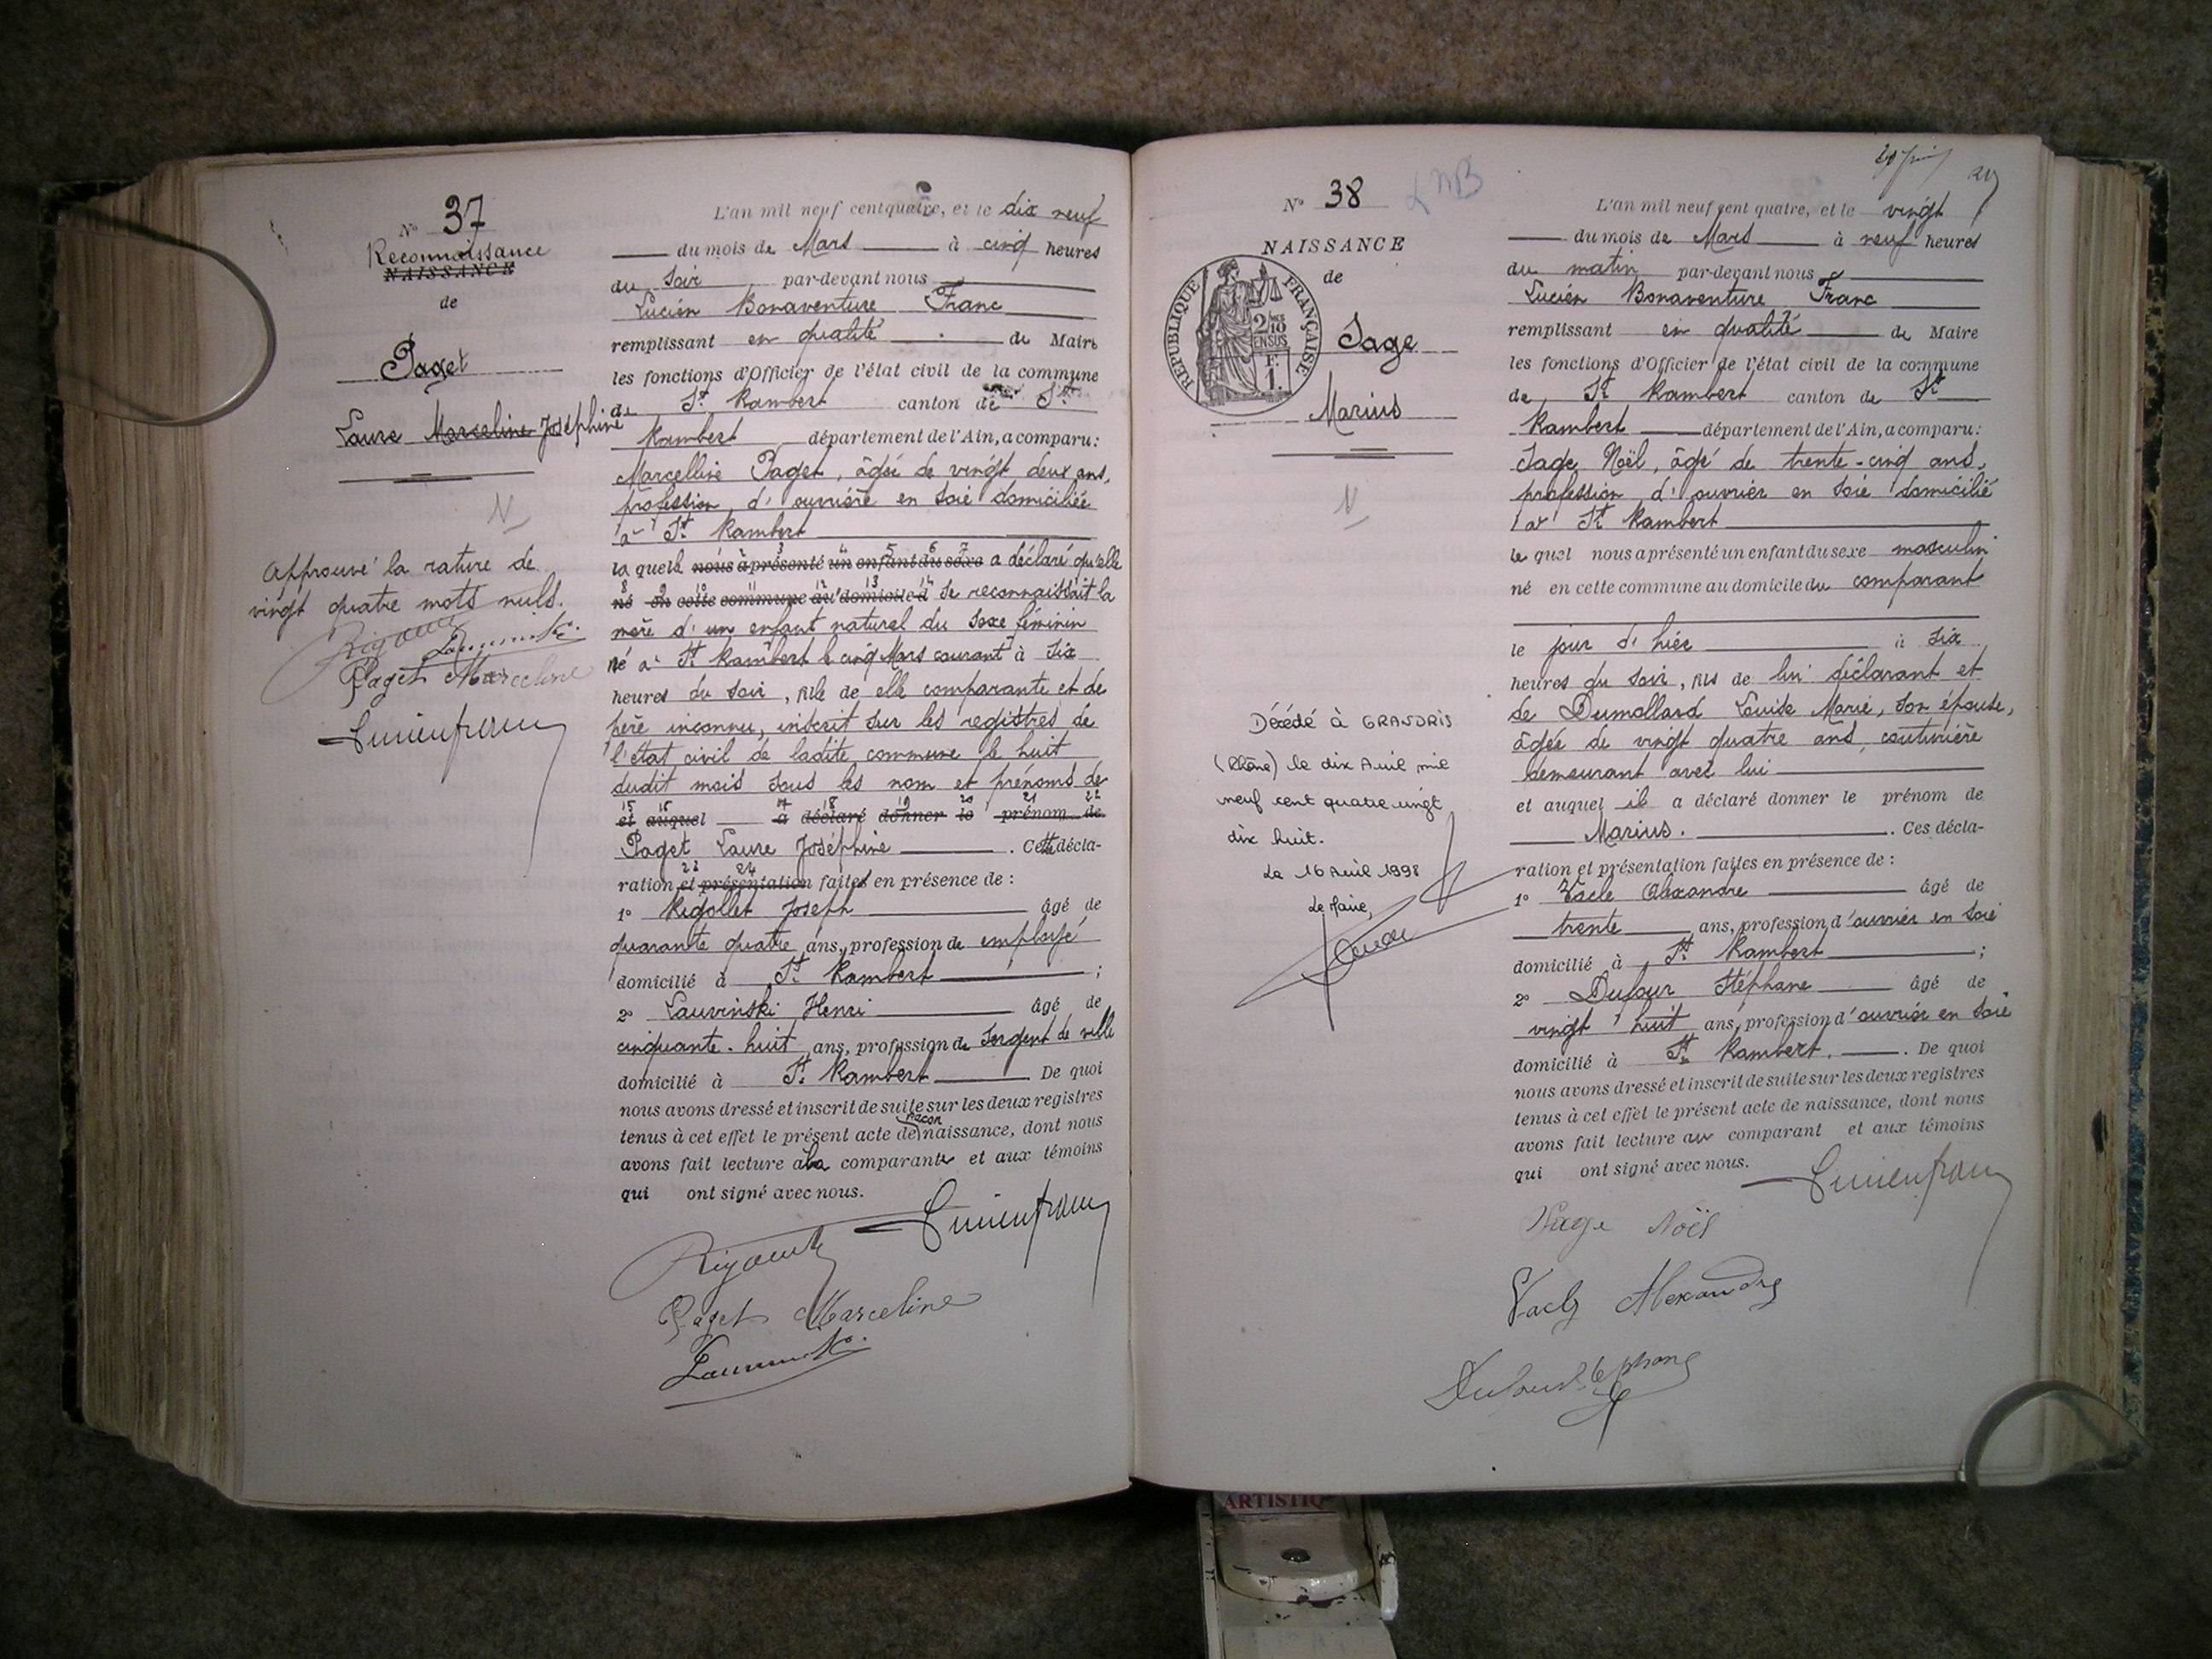 N° 37
Reconnaissance
NAISSANCE
de
Paget
Laure Marceline Joséphine
N
Approuvé la rature de
vingt quatre mots nuls.
Paget Marceline
L'an mil neuf cent quatre, et le dix neuf
du mois de Mars à cinq heures
du soir par-devant nous
Lucien Bonaventure Franc
remplissant en qualité de Maire
les fonctions d'Officier de l'état civil de la commune
de St Rambert canton de St
Rambert département de l'Ain, a comparu:
Marcelline Paget, âgée de vingt deux ans,
profession d'ouvrière en soie domiciliée
à St Rambert
la quelle nous a présenté un enfant du sexe a déclaré qu'elle
3 4 5 6 7
né en cette commune au domicile d se reconnaissait la
8 9 10 11 12 13 14
mère d'un enfant naturel du sexe féminin
né à St Rambert le cinq Mars courant à six
heures du soir, fille de elle comparante et de
père inconnu, inscrit sur les registres de
l'état civil de ladite commune le huit
dudit mois sous les nom et prénoms de
15 16 17 18 19 20 21 22
et auquel a déclaré donner le prénom de
Paget Laure Joséphine. Cette décla-
23 24
ration et présentation faites en présence de:
1° Rigollet Joseph âgé de
quarante quatre ans, profession de employé
domicilié à St Rambert;
2° Lauvinski Henri âgé de
cinquante-huit ans, profession de Sergent de ville
domicilié à St Rambert De quoi
nous avons dressé et inscrit de suite sur les deux registres
tenus à cet effet le présent acte de naissance, dont nous
avons fait lecture à la comparante et aux témoins
qui ont signé avec nous.
Paget Marceline
N° 38
LMB
NAISSANCE
de
RÉPUBLIQUE FRANÇAISE
2/10 EN SUS
F. 1.
Sage
Marius
N
Décédé à GRANDRIS
(Rhône) le dix Avril mil
neuf cent quatre vingt
dix huit.
Le 16 Avril 1998
Le Maire,
L'an mil neuf cent quatre, et le vingt
du mois de Mars à neuf heures
du matin par-devant nous
Lucien Bonaventure Franc
remplissant en qualité de Maire
les fonctions d'Officier de l'état civil de la commune
de St Rambert canton de St
Rambert département de l'Ain, a comparu:
Sage Noël, âgé de trente-cinq ans,
profession d'ouvrier en soie domicilié
à St Rambert
le quel nous a présenté un enfant du sexe masculin
né en cette commune au domicile du comparant
le jour d'hier à six
heures du soir, fils de lui déclarant et
de Dumollard Louise Marie, son épouse,
âgée de vingt quatre ans, couturière
demeurant avec lui
et auquel il a déclaré donner le prénom de
Marius. Ces décla-
ration et présentation faites en présence de:
1° Vacle Alexandre âgé de
trente ans, profession d'ouvrier en soie
domicilié à St Rambert;
2° Dufour Stéphane âgé de
vingt huit ans, profession d'ouvrier en soie
domicilié à St Rambert. De quoi
nous avons dressé et inscrit de suite sur les deux registres
tenus à cet effet le présent acte de naissance, dont nous
avons fait lecture au comparant et aux témoins
qui ont signé avec nous.
Sage Noël
Vacle Alexandre
ARTISTIQ